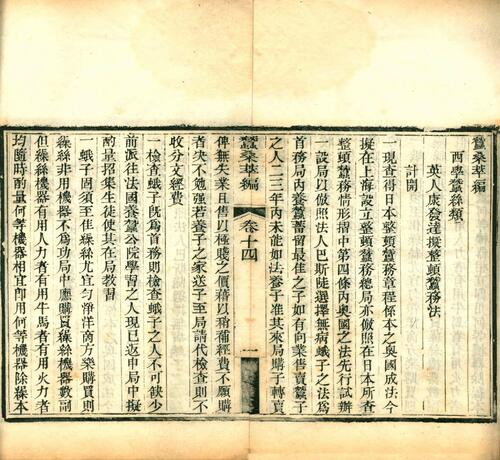 蠶桑萃編
西學蠶絲類
英人康發達擬整頓蠶務法
計開
一現查得日本整頓蠶務章程係本之奧國成法今
擬在上海設立整頓蠶務總局亦倣照在日本所查
整頓蠶務情形摺中第四條內奧國之法先行試辦
一設局以倣照法人巴斯陡選擇無病蛾子之法爲
首務局內養蠶蓄留最佳之子如有向業售賣蠶子
之人二三年內未能如法養子准其來局購子轉賣
俾無失業且售以極賤之價藉以稍補經費不願購
者決不勉强若養子之家送子至局請代檢查則不
收分文經費
一檢查蛾子旣爲首務則檢查蛾子之人不可缺少
前派往法國養蠶公院學習之人現已返申局中擬
酌量招集生徒使其在局教習
一蛾子固須至佳繰絲尤宜勻淨洋商方樂購買則
繰絲非用機器不爲功局中應購買繰絲機器數副
但繰絲機器有用人力者有用牛馬者有用火力者
均隨時酌量何等機器相宜卽用何等機器除繰本
蠶桑萃編
卷十四
一